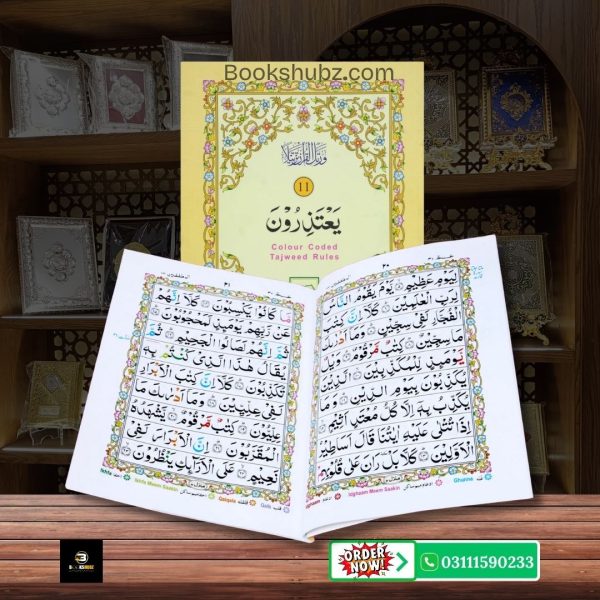 Bookshubz.com
وَرَتِّلِ الْقُرْآنَ تَرْتِيلًا
11
يَعْتَذِرُوْنَ
Colour Coded
Tajweed Rules
يَوْمٍ عَظِيْمٍ ۙ يَّوْمَ يَقُوْمُ النَّاسُ
لِرَبِّ الْعٰلَمِيْنَ ؕ كَلَّاۤ اِنَّ كِتٰبَ
الْفُجَّارِ لَفِيْ سِجِّيْنٍ ؕ وَمَاۤ اَدْرٰىكَ
مَا سِجِّيْنٌ ؕ كِتٰبٌ مَّرْقُوْمٌ ؕ وَيْلٌ
يَّوْمَىِٕذٍ لِّلْمُكَذِّبِيْنَ ۙ الَّذِيْنَ
يُكَذِّبُوْنَ بِيَوْمِ الدِّيْنِ ؕ وَمَا
يُكَذِّبُ بِهٖۤ اِلَّا كُلُّ مُعْتَدٍ اَثِيْمٍ ۙ
اِذَا تُتْلٰى عَلَيْهِ اٰيٰتُنَا قَالَ اَسَاطِيْرُ
الْاَوَّلِيْنَ ؕ كَلَّا بَلْ رَانَ عَلٰى قُلُوْبِهِمْ
Idghaam Meem Saakin
Ghunna
غنه
٣١
مَّا كَانُوْا يَكْسِبُوْنَ كَلَّاۤ اِنَّهُمْ
عَنْ رَّبِّهِمْ يَوْمَىِٕذٍ لَّمَحْجُوْبُوْنَ ؕ
ثُمَّ اِنَّهُمْ لَصَالُوا الْجَحِيْمِ ؕ ثُمَّ
يُقَالُ هٰذَا الَّذِيْ كُنْتُمْ بِهٖ
تُكَذِّبُوْنَ ؕ كَلَّاۤ اِنَّ كِتٰبَ الْاَبْرَارِ
لَفِيْ عِلِّيِّيْنَ ؕ وَمَاۤ اَدْرٰىكَ مَا
عِلِّيُّوْنَ ؕ كِتٰبٌ مَّرْقُوْمٌ ۙ يَّشْهَدُهُ
الْمُقَرَّبُوْنَ ؕ اِنَّ الْاَبْرَارَ لَفِيْ
نَعِيْمٍ ۙ عَلَى الْاَرَآىِٕكِ يَنْظُرُوْنَ ۙ
Ikhfa
Ikhfa Meem Saakin
Qalqala
قلقله
Qalb
قلب
BOOKSHUBZ
ORDER NOW!
03111590233